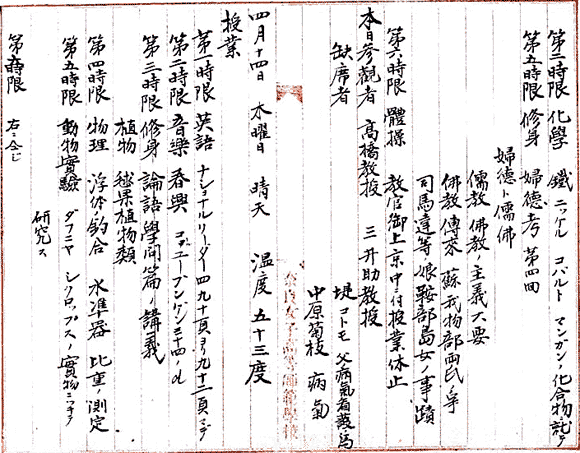 第二時限 化學 鐵 ニッケル コバルト マンガンノ化合物
第五時限 修身 婦德考 第四回
婦德ト儒佛
儒教佛教ノ主義大要
佛教傳來 蘇我物部両氏ノ争
司馬達等娘鞍部島女ノ事蹟
第六時限 體操 教官御上京中ニ付授業休止
本日参觀者 高橋教授 三升助教授
缺席者 堤コトモ 父病氣看護ノ為
中原菊枝 病氣
四月十四日 木曜日 晴天 温度 五十三度
授業
第一時限 英語 ナショナルリーダー四 九十頁ヨリ九十二頁マデ
第二時限 音樂 春興 コールユーブンゲン三十四ノd
第三時限 修身 論語 學問篇ノ講義
植物 毬果植物類
第四時限 物理 浮体ノ釣合 水準器 比重ノ測定
第五時限 動物實驗 ダフニヤ シクロップスノ實物ニツキテ
研究ス
第六時限 右ニ仝じ
奈良女子高等師範學校